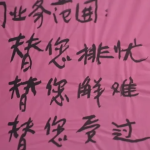 门业务范围：
替您排忧
替您解难
替您受过